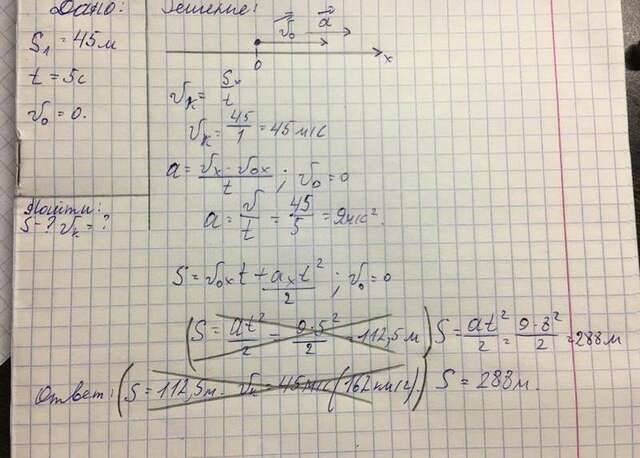 Дано:
S₁ = 45 м
t = 5 с
v₀ = 0.
Найти:
S - ? vₖ = ?
Решение:
v₀ a
0 x
vₖ = Sₓ/t
vₖ = 45/1 = 45 м/с
a = (vₓ - v₀ₓ)/t ; v₀ = 0
a = v/t = 45/5 = 9 м/с².
S = v₀ₓt + aₓt²/2 ; v₀ = 0
(S = at²/2 = 9·5²/2 = 112,5 м) S = at²/2 = 9·8²/2 = 288 м
Ответ: (S = 112,5 м. vₖ = 45 м/с (162 км/ч).) S = 288 м.